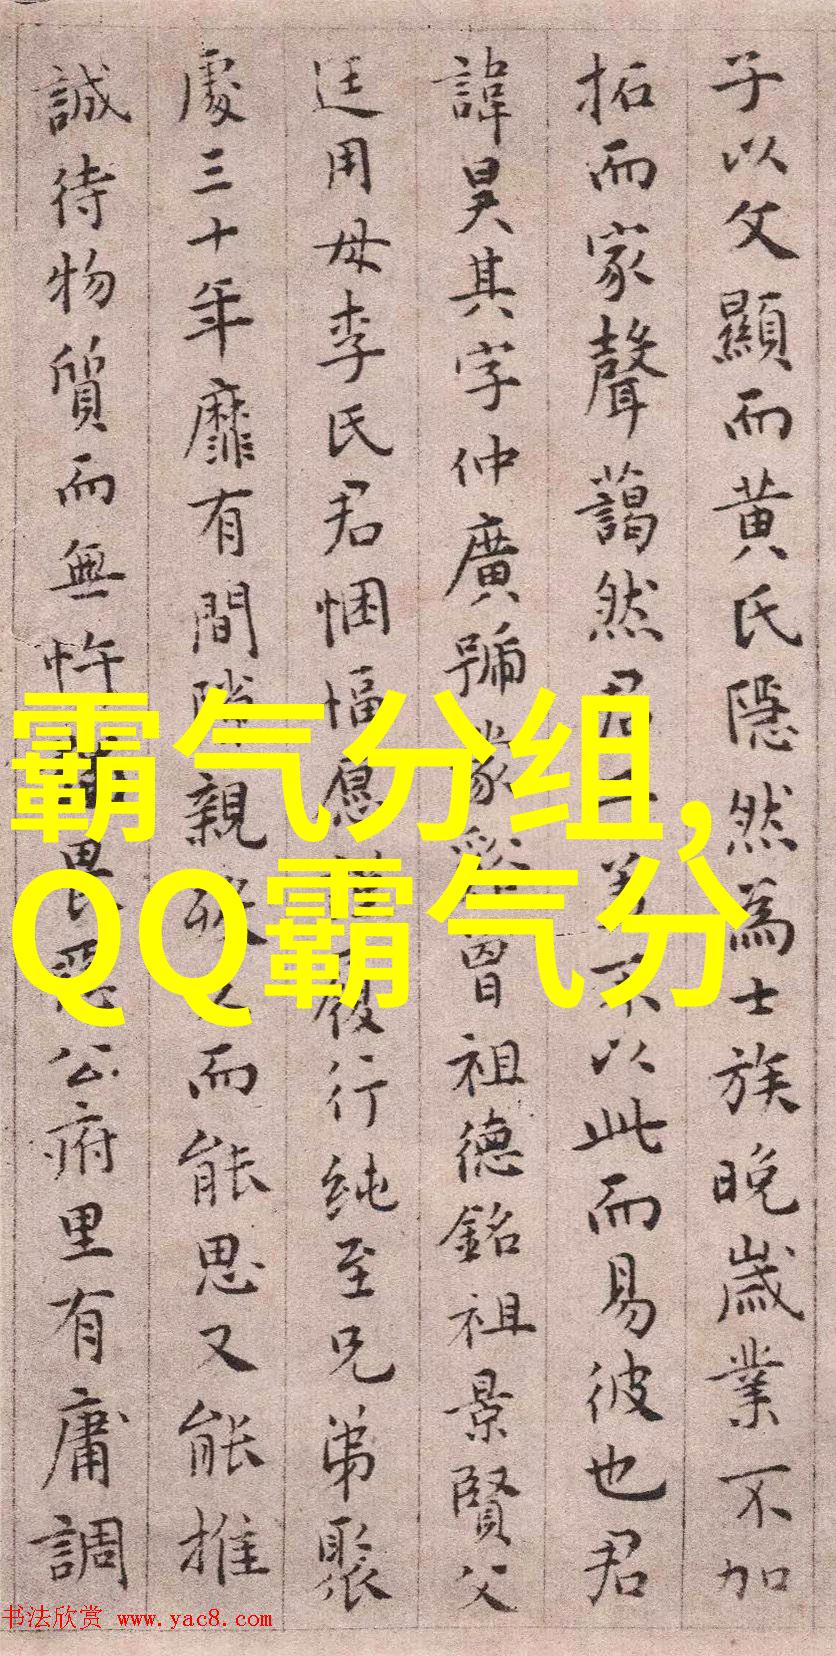 子以文顯而黄氏隱然為士族晚歲業不加
拓而家聲藹然君子不以此而易彼也君
諱昊其字仲廣號曾祖德銘祖景賢父
廷用母李氏君悃愊履行純至兄弟聚
處三十年靡有間親而能思又能推
誠待物質而無忤畏公府里有庸調
霸气分组,
QQ霸气分
书法欣赏 www.yac8.com